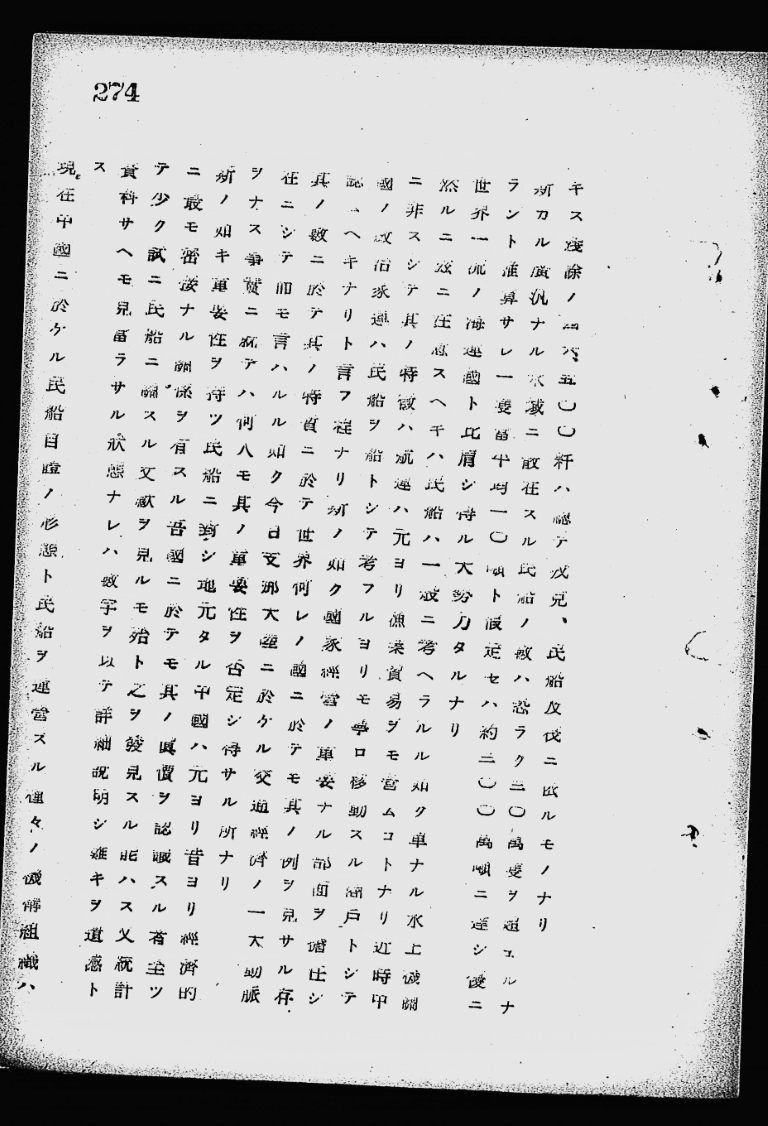 274
キス残餘ノ 五〇〇粁ハ認テ戎克、民船及筏ニ依ルモノナリ
斯カル廣汎ナル水域ニ散在スル民船ノ數ハ恐ラク二〇萬隻ヲ超ユルナ
ラント推算サレ一隻當平均一〇噸ト假定セハ約二〇〇萬噸ニ達シ優ニ
世界一流ノ海運國ト比肩シ得ル大勢力タルナリ
然ルニ茲ニ注意スヘキハ民船ハ一般ニ考ヘラルル如ク單ナル水上機關
ニ非スシテ其ノ特徴ハ航運ハ元ヨリ漁業貿易ヲモ營ムコトナリ近時中
國ノ政治家連ハ民船ヲ船トシテ考フルヨリモ寧ロ移動スル商戶トシテ
認ムヘキナリト言フ程ナリ斯ノ如ク國家經營ノ重要ナル部面ヲ擔任シ
其ノ數ニ於テ其ノ特質ニ於テ世界何レノ國ニ於テモ其ノ例ヲ見サル存
在ニシテ而モ言ハルル如ク今日支那大陸ニ於ケル交通經濟ノ一大動脈
ヲナス事實ニ就テハ何人モ其ノ重要性ヲ否定シ得サル所ナリ
斯ノ如キ重要性ヲ持ツ民船ニ對シ地元タル中國ハ元ヨリ昔ヨリ經濟的
ニ最モ密接ナル關係ヲ有スル吾國ニ於テモ其ノ眞價ヲ認識スル者至ツ
テ少ク試ニ民船ニ關スル文獻ヲ見ルモ殆ト之ヲ發見スル能ハス又統計
資料サヘモ見當ラサル狀態ナレハ數字ヲ以テ詳細說明シ難キヲ遺憾ト
ス
現在中國ニ於ケル民船自體ノ形態ト民船ヲ運營スル種々ノ機構組織ハ